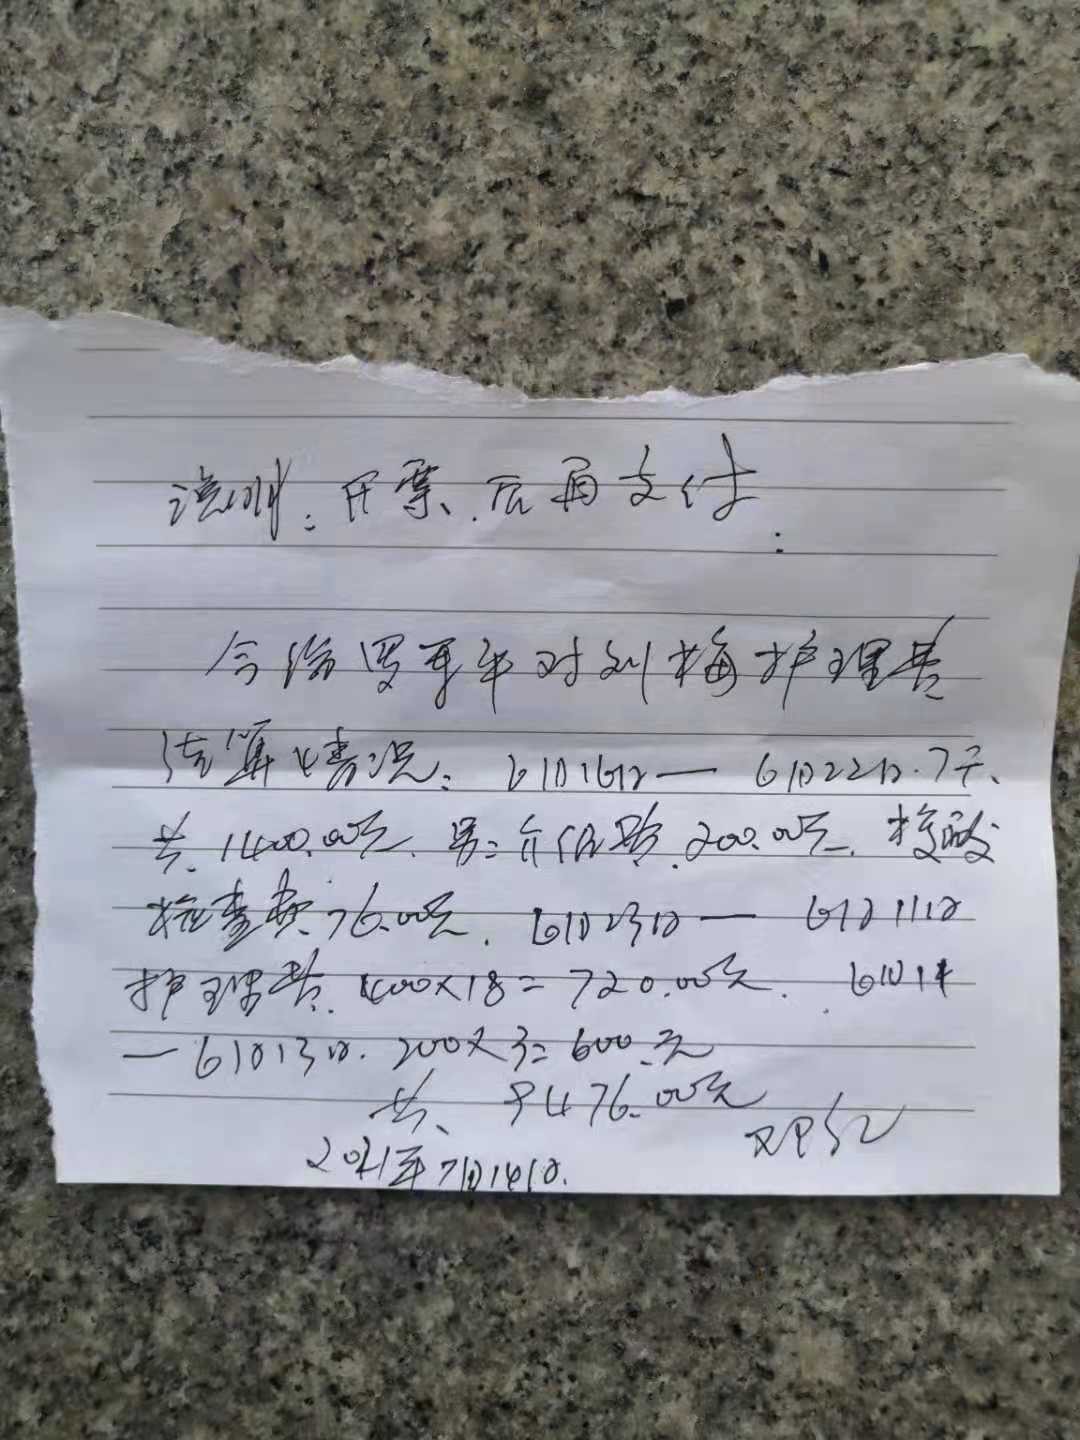 说明：开票、后再支付：
今给罗军平对刘梅护理费
结算情况：6月16日— 6月22日.7天、
共.1400.00元.另：介绍费.200.00元.核酸
检查费.76.00元.6月23日— 6月11日
护理费.400×18=720.00元. 6月14
—6月13日.200×3=600.元
共、9476.00元
2021年7月14日.